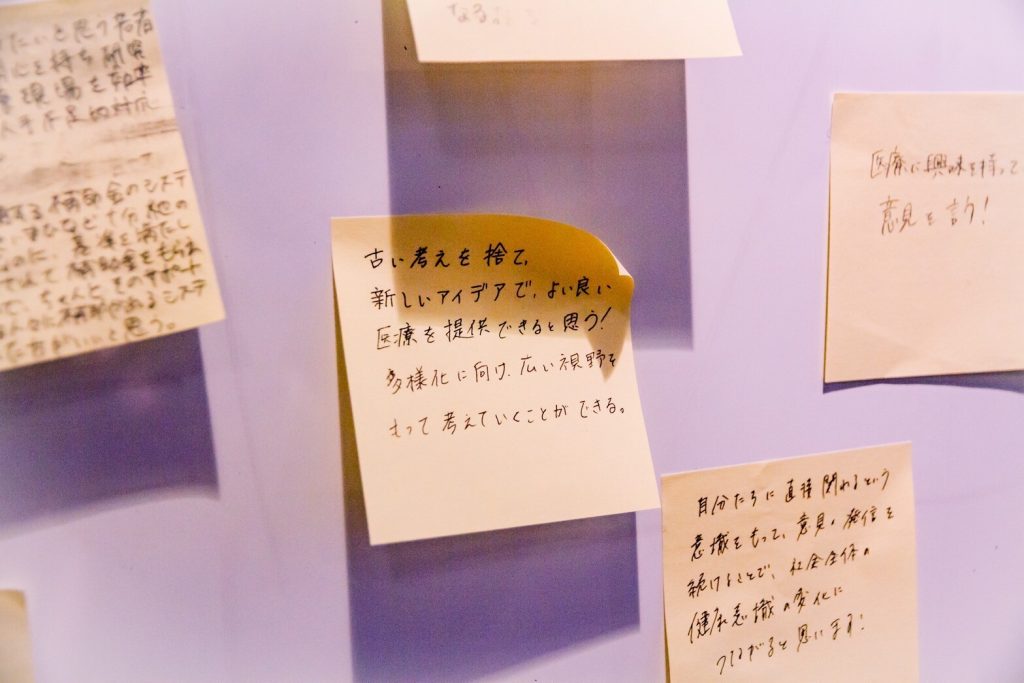 なる
たいと思う若者
心を持ち
現場を
人手不足的対応
補助金のシステ
など十分、他の
のに、基準を満たし
補助金をもらえ
ちゃんと、そのサポート
システ
と思う。
古い考えを捨て、
新しいアイデアで、よい良い
医療を提供できると思う!
多様化に向け、広い視野を
もって考えていくことができる。
医療に興味を持って
意見を言う!
自分たちに直接関わるという
意識をもって、意見の発信を
続けることで、社会全体の
健康意識の変化に
つながると思います!